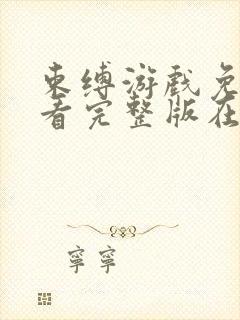 束缚游戏免
看完整版在
寧寧